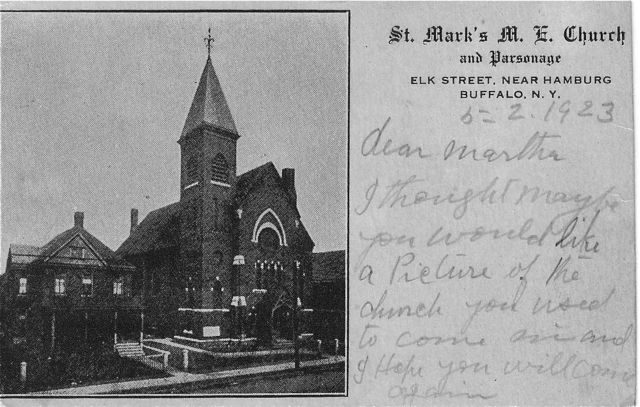 St. Mark's M. E. Church
and Parsonage
ELK STREET, NEAR HAMBURG
BUFFALO, N. Y.
5-2.1923
dear martha
I thought maybe
you would like
a Picture of the
church you used
to come in and
I Hope you will come
again